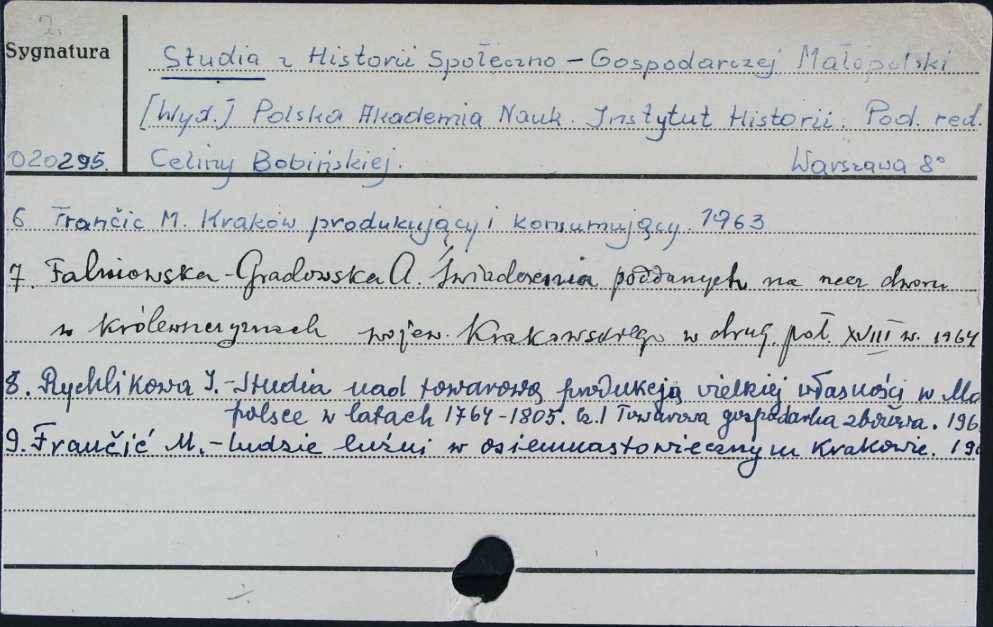 2.
Sygnatura
Studia z Historii Społeczno - Gospodarczej Małopolski
[Wyd.] Polska Akademia Nauk. Instytut Historii. Pod. red.
020295. Celiny Bobińskiej. Warszawa 8°
6 Frančic M. Kraków produkujący i konsumujący. 1963
7. Falniowska-Gradowska A. Świadczenia poddanych na rzecz dworu
w królewszczyznach wojew. Krakowskiego w drug. poł. XVIII w. 1964
8. Rychlikowa I. - Studia nad towarową produkcją wielkiej własności w Ma
polsce w latach 1764-1805. Cz. I Towarowa gospodarka zbożowa. 196
9. Frančić M. - Ludzie luźni w osiemnastowiecznym Krakowie. 19